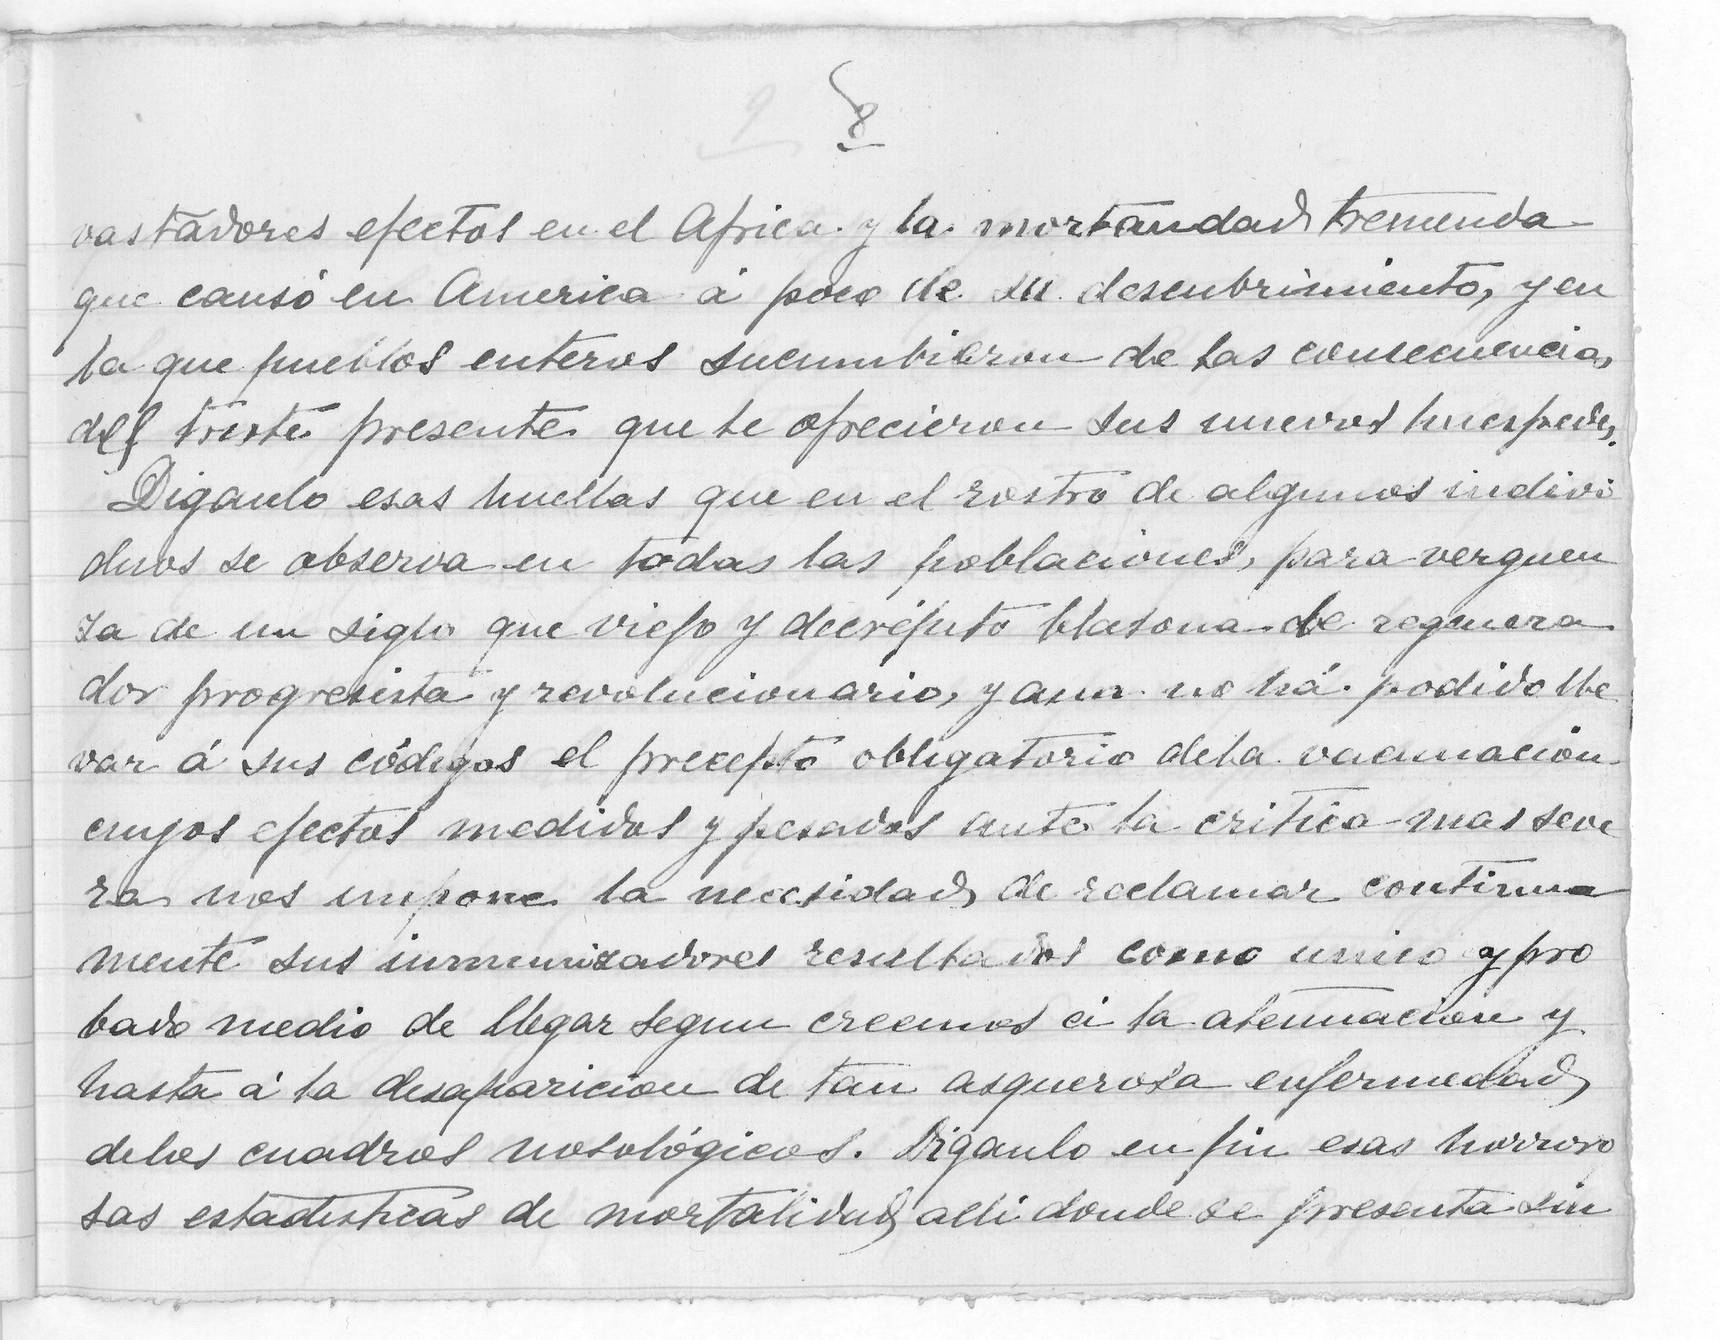 9 8
vastadores efectos en el Africa y la mortandad tremenda
que causó en America á poco de su descubrimiento, y en
la que pueblos enteros sucumbieron de las consecuencias
del triste presente que le ofrecieron sus nuevos huespedes.
Diganlo esas huellas que en el rostro de algunos indivi
duos se observa en todas las poblaciones, para verguen
za de un siglo que viejo y decrépito blasona de regenera
dor progresista y revolucionario, y aun no há podido lle
var á sus códigos el precepto obligatorio de la vacunación
cuyos efectos medidos y pesados ante la critica mas seve
ra nos impone la necesidad de reclamar continua
mente sus inmunizadores resultados como unico y pro
bado medio de llegar segun creemos á la atenuacion y
hasta á la desaparicion de tan asquerosa enfermedad
de los cuadros nosológicos. Diganlo en fin esas horroro
sas estadisticas de mortalidad alli donde se presenta sin